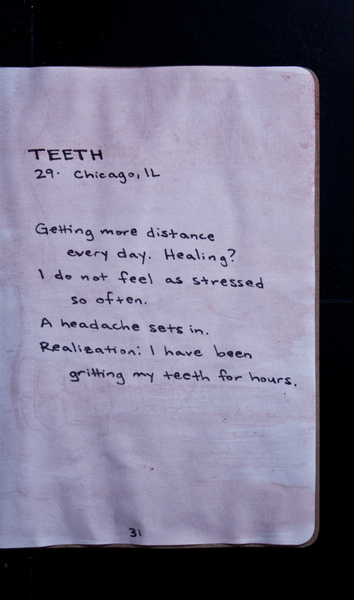 TEETH
29. Chicago, IL
Getting more distance
every day. Healing?
I do not feel as stressed
so often.
A headache sets in.
Realization: I have been
gritting my teeth for hours.
31